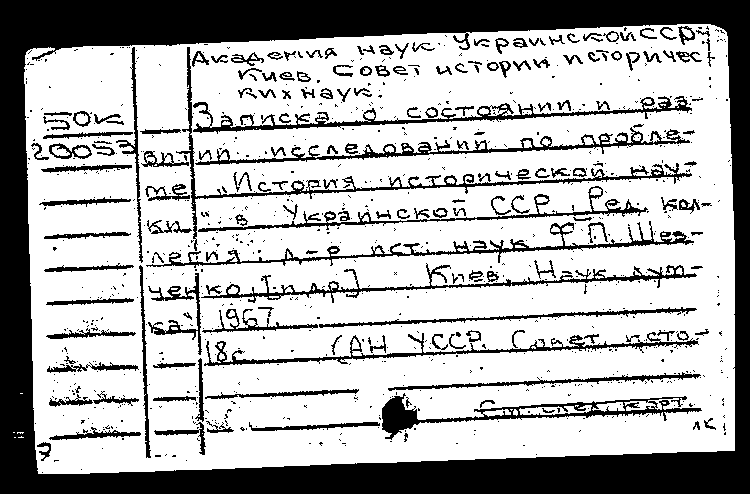 Академия наук Украинской ССР.
Киев. Совет истории историчес-
ких наук.
50к Записка о состоянии и раз-
20053 витии исследований по пробле-
ме „История исторической нау-
ки" в Украинской ССР. Ред. кол-
легия: д-р ист. наук Ф.П. Шев-
ченко, [и др.] Киев, "Наук. дум-
ка", 1967.
18с. (АН УССР. Совет исто-
См. след. карт.
лк